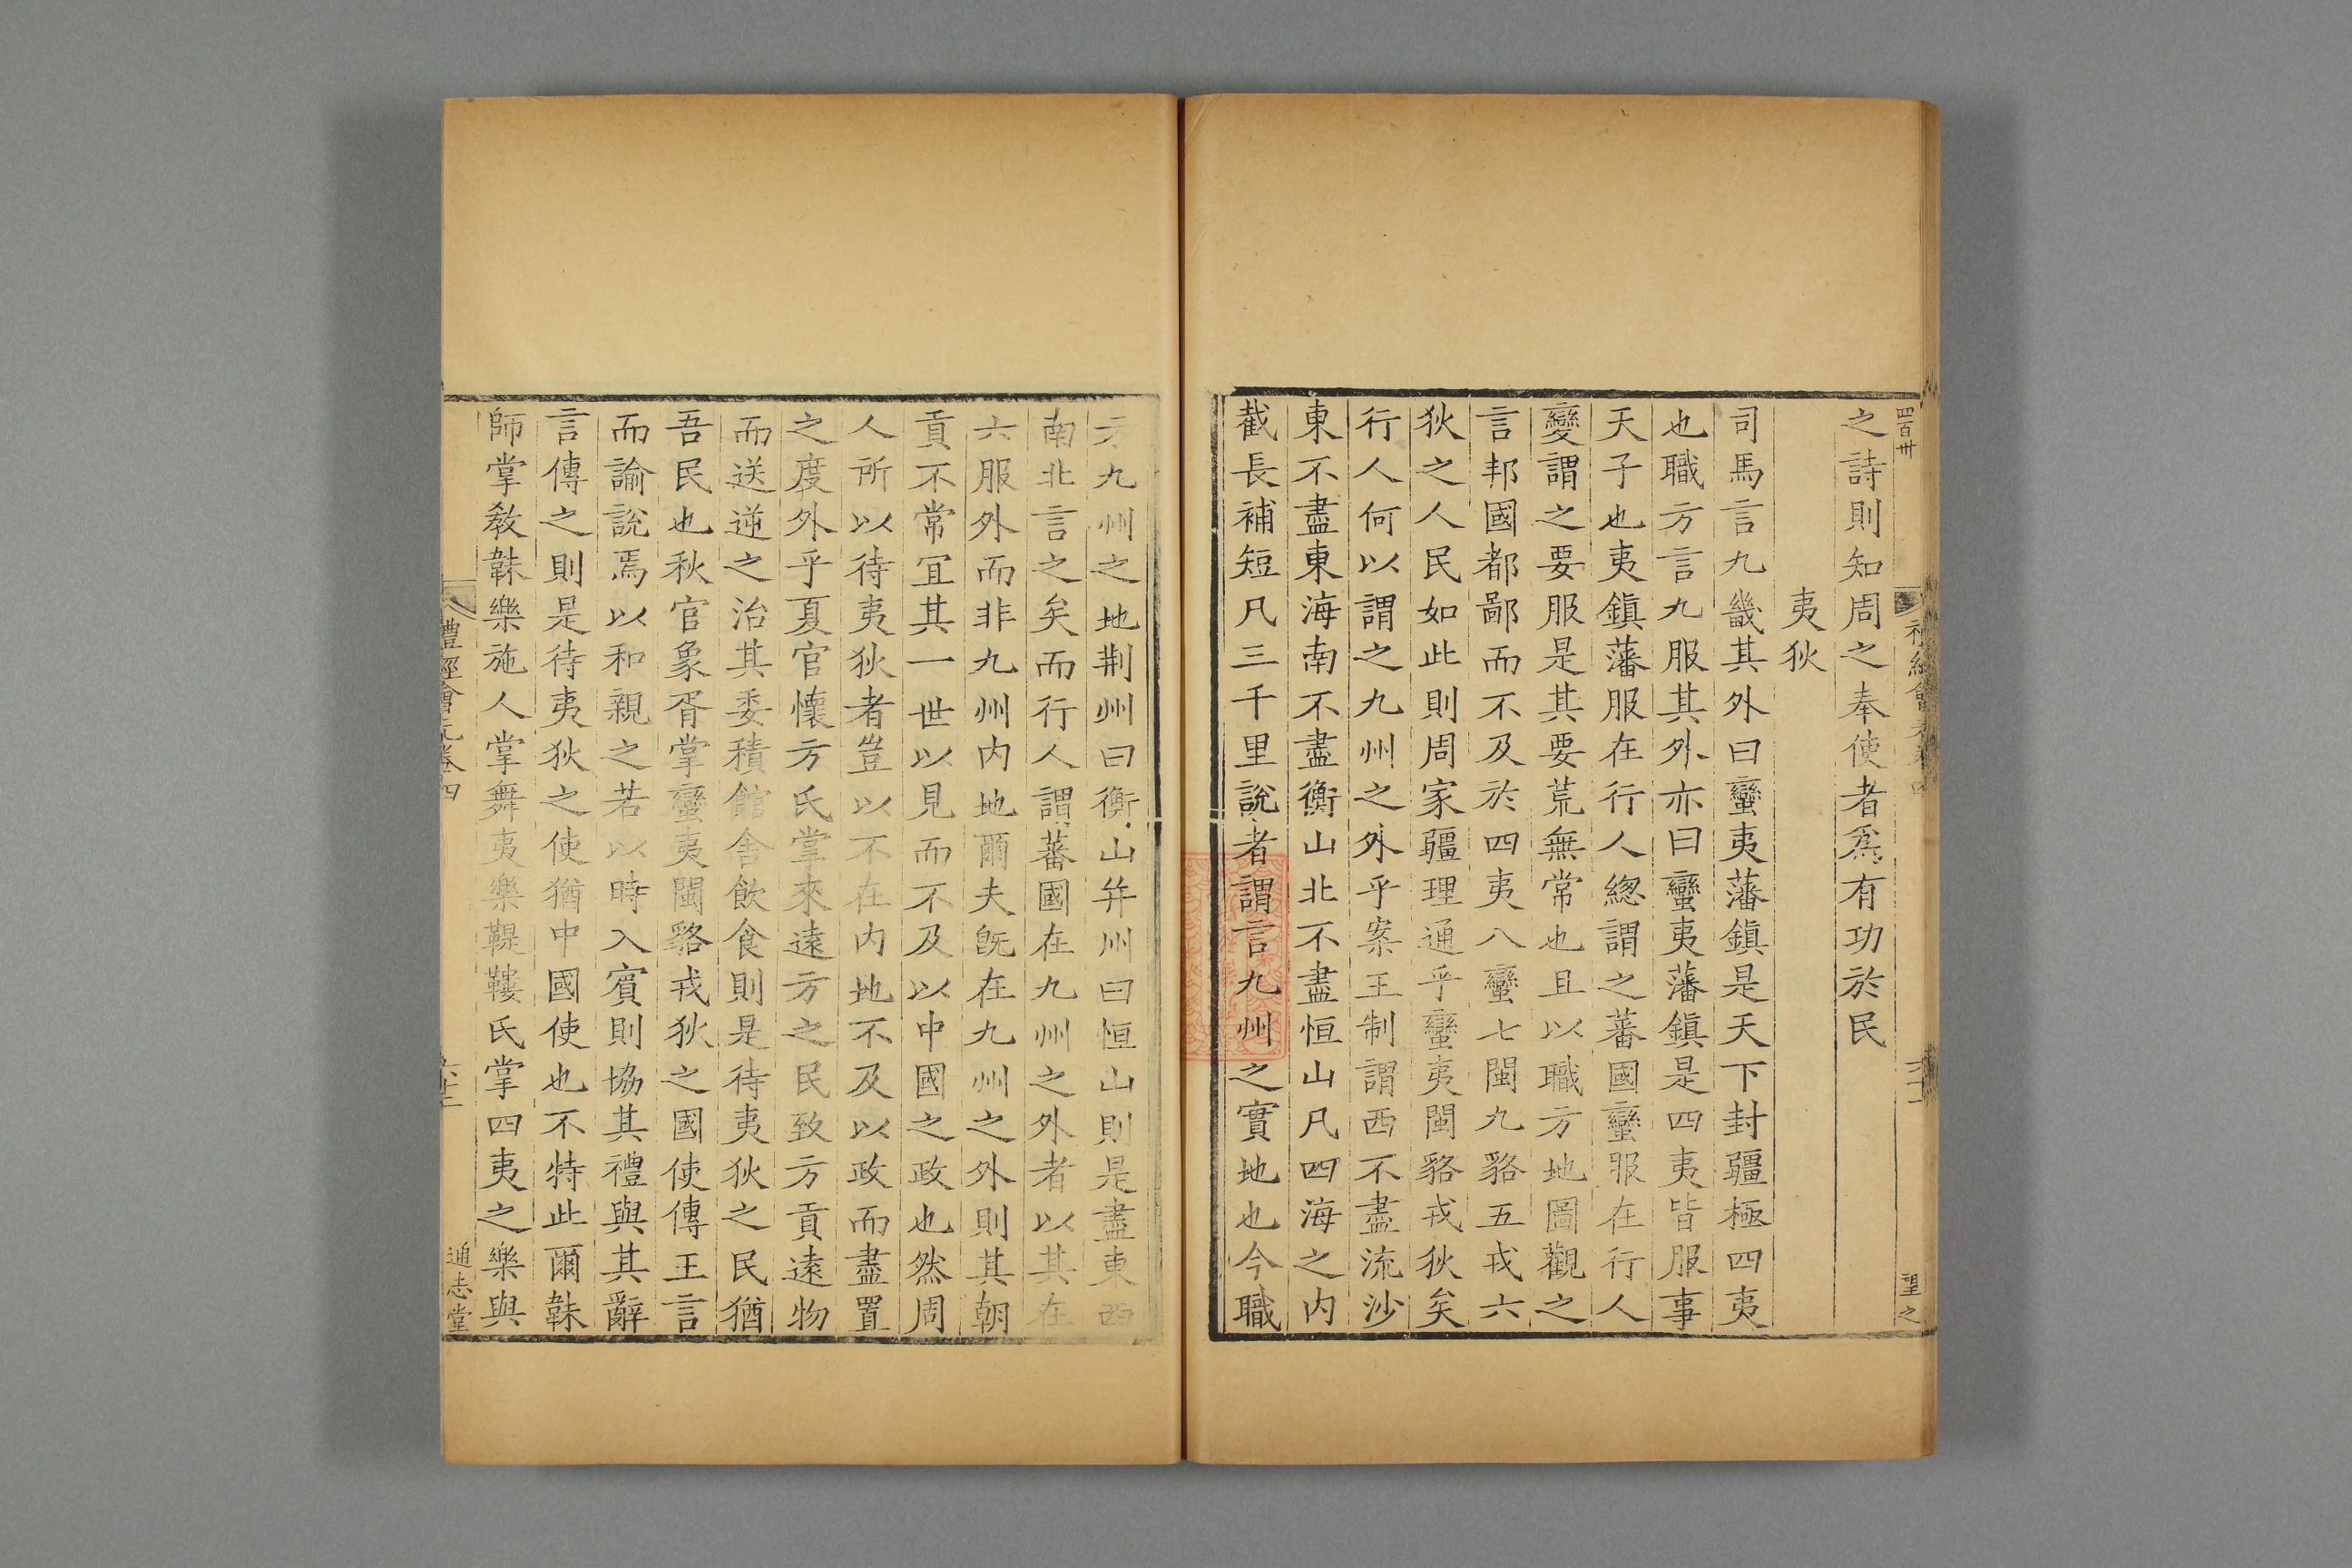 之詩則知周之奉使者爲有功於民
夷狄
司馬言九畿其外曰蠻夷藩鎮是天下封疆極四夷
也職方言九服其外亦曰蠻夷藩鎮是四夷皆服事
天子也夷鎮藩服在行人緫謂之蕃國蠻服在行人
變謂之要服是其要荒無常也且以職方地圖觀之
言邦國都鄙而不及於四夷八蠻七閩九貉五戎六
狄之人民如此則周家疆理通乎蠻夷閩貉戎狄矣
行人何以謂之九州之外乎案王制謂西不盡流沙
東不盡東海南不盡衡山北不盡恒山凡四海之内
截長補短凡三千里說者謂言九州之實地也今職
方九州之地荆州曰衡山并州曰恒山則是盡東西
南北言之矣而行人謂蕃國在九州之外者以其在
六服外而非九州内地爾夫旣在九州之外則其朝
貢不常宜其一世以見而不及以中國之政也然周
人所以待夷狄者豈以不在内地不及以政而盡置
之度外乎夏官懷方氏掌來遠方之民致方貢遠物
而送逆之治其委積館舍飲食則是待夷狄之民猶
吾民也秋官象胥掌蠻夷閩貉戎狄之國使傳王言
而諭說焉以和親之若以時入賓則協其禮與其辭
言傳之則是待夷狄之使猶中國使也不特此爾韎
師掌敎韎樂施人掌舞夷樂鞮鞻氏掌四夷之樂與
禮經會元卷四
通志堂